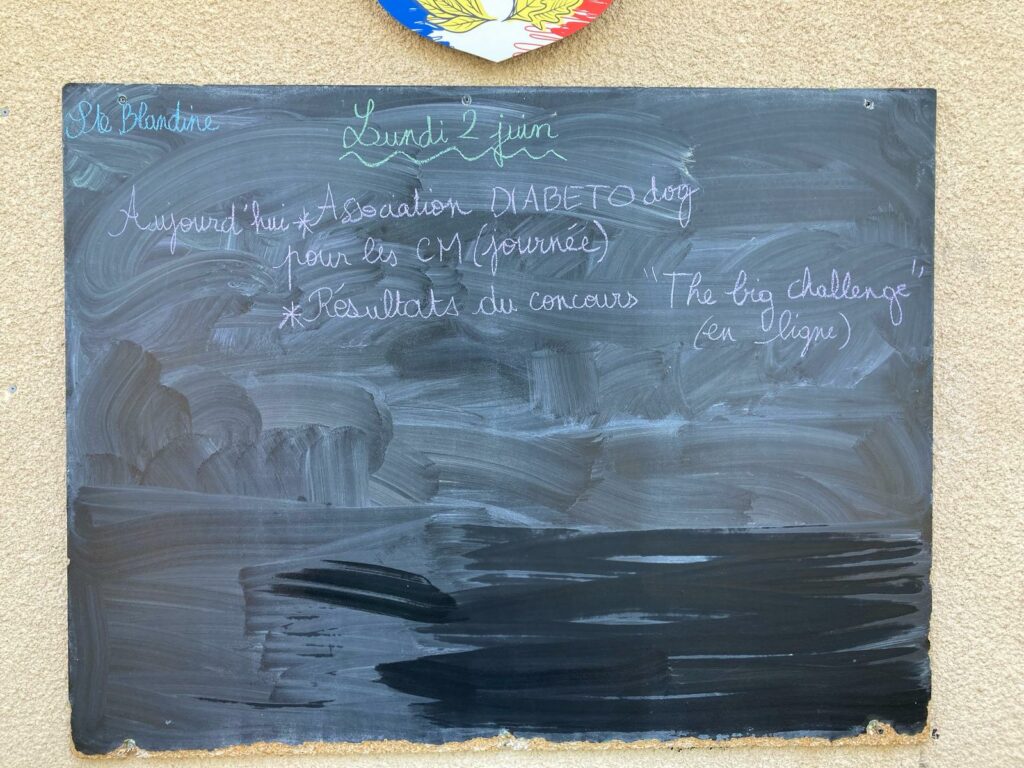 Ste Blandine
Lundi 2 juin
Aujourd'hui * Association DIABETO dog
pour les CM (journée)
* Résultats du concours "The big challenge"
(en ligne)